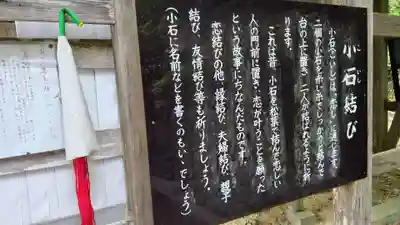 小石結び
小石(こいし)は「恋し」に通じます。
二個の小石を赤い糸でしっかりと結んで
台の上に置き 二人が結ばれるように祈
ります。
これは昔 小石を松葉で結んで恋しい
人の門前に置き、恋が叶うことを願った
という故事にちなんだものです。
恋結びの他、縁結び、夫婦結び、親子
結び、友情結び等も祈りましょう。
(小石に名前などを書くのもいいでしょう)